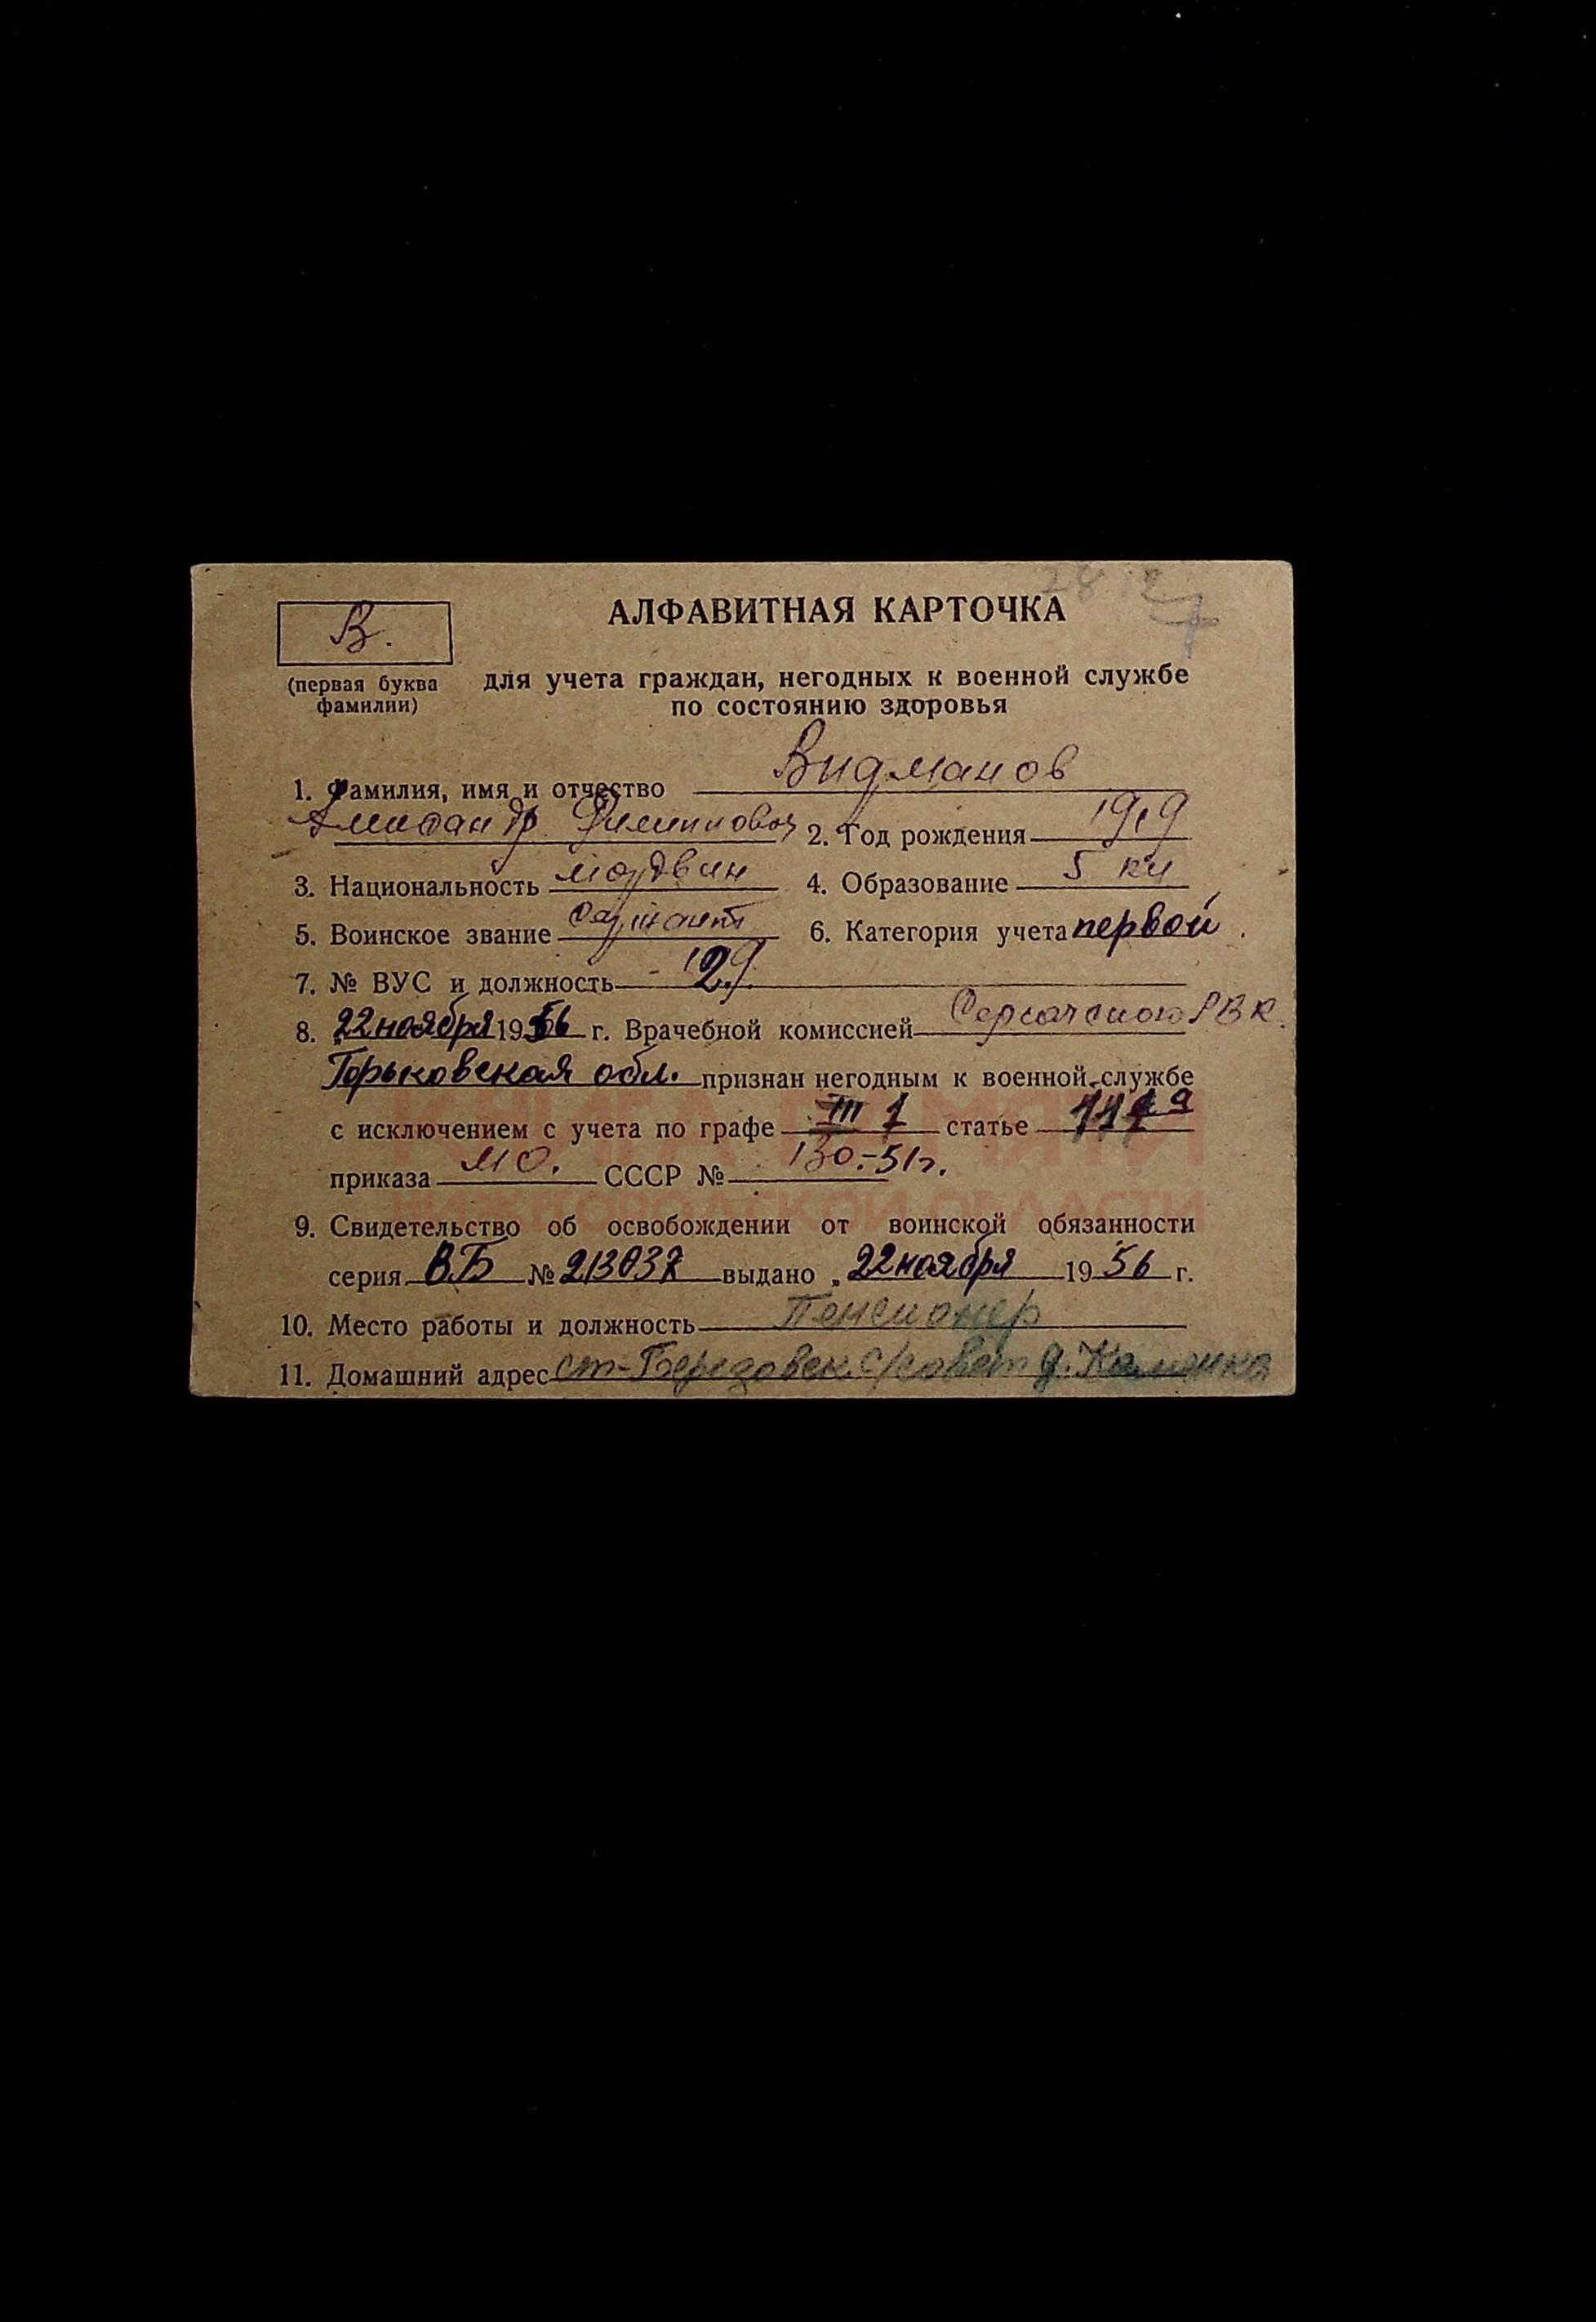 В.
АЛФАВИТНАЯ КАРТОЧКА
(первая буква
фамилии)
для учета граждан, негодных к военной службе
по состоянию здоровья
1. Фамилия, имя и отчество Видманов
Александр Филиппович 2. Год рождения 1919
3. Национальность мордвин 4. Образование 5 кл
5. Воинское звание сержант 6. Категория учета первой.
7. № ВУС и должность 129
8. 22 ноября 1956 г. Врачебной комиссией Сергачского РВК.
Горьковская обл. признан негодным к военной службе
с исключением с учета по графе III 1 статье
приказа МО. СССР № 130-51г.
9. Свидетельство об освобождении от воинской обязанности
серия ВБ № 213037 выдано „22 ноября 1956 г.
10. Место работы и должность Пенсионер
11. Домашний адрес ст-Березовск. с/совет д. Калинка
КНИГА ПАМЯТИ
НИЖЕГОРОДСКОЙ ОБЛАСТИ